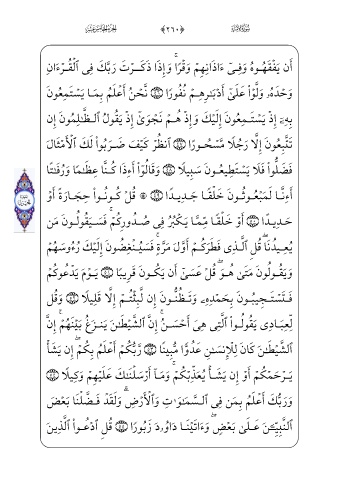 أَن يَفْقَهُوهُ وَفِىٓ ءَاذَانِهِمْ وَقْرًا ۚ وَإِذَا ذَكَرْتَ رَبَّكَ فِى ٱلْقُرْءَانِ
وَحْدَهُۥ وَلَّوْا۟ عَلَىٰٓ أَدْبَـٰرِهِمْ نُفُورًا ﴿٤٦﴾ نَّحْنُ أَعْلَمُ بِمَا يَسْتَمِعُونَ
بِهِۦٓ إِذْ يَسْتَمِعُونَ إِلَيْكَ وَإِذْ هُمْ نَجْوَىٰٓ إِذْ يَقُولُ ٱلظَّـٰلِمُونَ إِن
تَتَّبِعُونَ إِلَّا رَجُلًا مَّسْحُورًا ﴿٤٧﴾ ٱنظُرْ كَيْفَ ضَرَبُوا۟ لَكَ ٱلْأَمْثَالَ
فَضَلُّوا۟ فَلَا يَسْتَطِيعُونَ سَبِيلًا ﴿٤٨﴾ وَقَالُوٓا۟ أَءِذَا كُنَّا عِظَـٰمًا وَرُفَـٰتًا
أَءِنَّا لَمَبْعُوثُونَ خَلْقًا جَدِيدًا ﴿٤٩﴾ ۞ قُلْ كُونُوا۟ حِجَارَةً أَوْ
حَدِيدًا ﴿٥٠﴾ أَوْ خَلْقًا مِّمَّا يَكْبُرُ فِى صُدُورِكُمْ ۚ فَسَيَقُولُونَ مَن
يُعِيدُنَا ۖ قُلِ ٱلَّذِى فَطَرَكُمْ أَوَّلَ مَرَّةٍ ۚ فَسَيُنْغِضُونَ إِلَيْكَ رُءُوسَهُمْ
وَيَقُولُونَ مَتَىٰ هُوَ ۖ قُلْ عَسَىٰٓ أَن يَكُونَ قَرِيبًا ﴿٥١﴾ يَوْمَ يَدْعُوكُمْ
فَتَسْتَجِيبُونَ بِحَمْدِهِۦ وَتَظُنُّونَ إِن لَّبِثْتُمْ إِلَّا قَلِيلًا ﴿٥٢﴾ وَقُل
لِّعِبَادِى يَقُولُوا۟ ٱلَّتِى هِىَ أَحْسَنُ ۚ إِنَّ ٱلشَّيْطَـٰنَ يَنزَغُ بَيْنَهُمْ ۚ إِنَّ
ٱلشَّيْطَـٰنَ كَانَ لِلْإِنسَـٰنِ عَدُوًّا مُّبِينًا ﴿٥٣﴾ رَّبُّكُمْ أَعْلَمُ بِكُمْ ۖ إِن يَشَأْ
يَرْحَمْكُمْ أَوْ إِن يَشَأْ يُعَذِّبْكُمْ ۚ وَمَآ أَرْسَلْنَـٰكَ عَلَيْهِمْ وَكِيلًا ﴿٥٤﴾
وَرَبُّكَ أَعْلَمُ بِمَن فِى ٱلسَّمَـٰوَٰتِ وَٱلْأَرْضِ ۗ وَلَقَدْ فَضَّلْنَا بَعْضَ
ٱلنَّبِيِّـۧنَ عَلَىٰ بَعْضٍ ۖ وَءَاتَيْنَا دَاوُۥدَ زَبُورًا ﴿٥٥﴾ قُلِ ٱدْعُوا۟ ٱلَّذِينَ